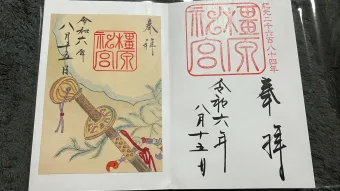 奉拝
橿原神宮
令和六年
八月十五日
紀元二千六百八十四年
橿原神宮
奉拝
令和六年
八月十五日